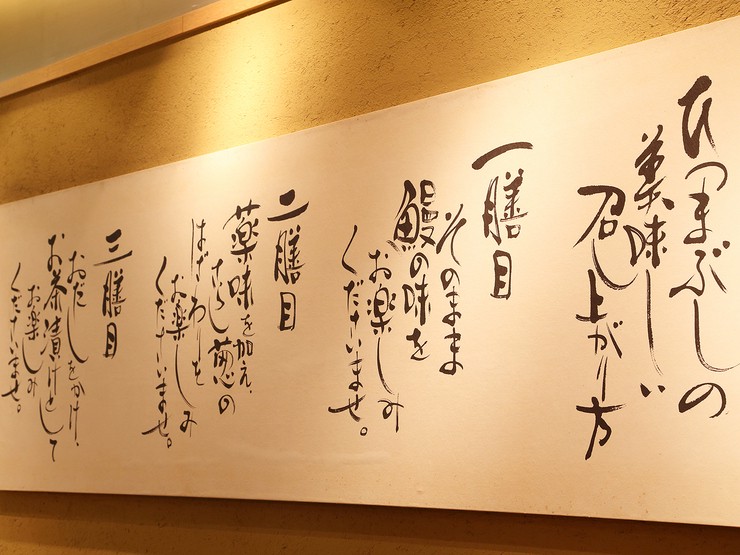 ひつまぶしの
美味しい
召し上がり方
一膳目
そのまま
鰻の味を
お楽しみ
くださいませ。
二膳目
薬味を加え、
さらし葱の
はざわりを
お楽しみ
くださいませ。
三膳目
おだしをかけ、
お茶漬けとして
お楽しみ
くださいませ。